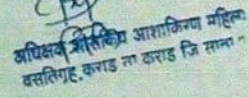 अधिक्षक शासकिय आशाकिरण महिला
वसतिगृह, कराड ता कराड जि सातारा